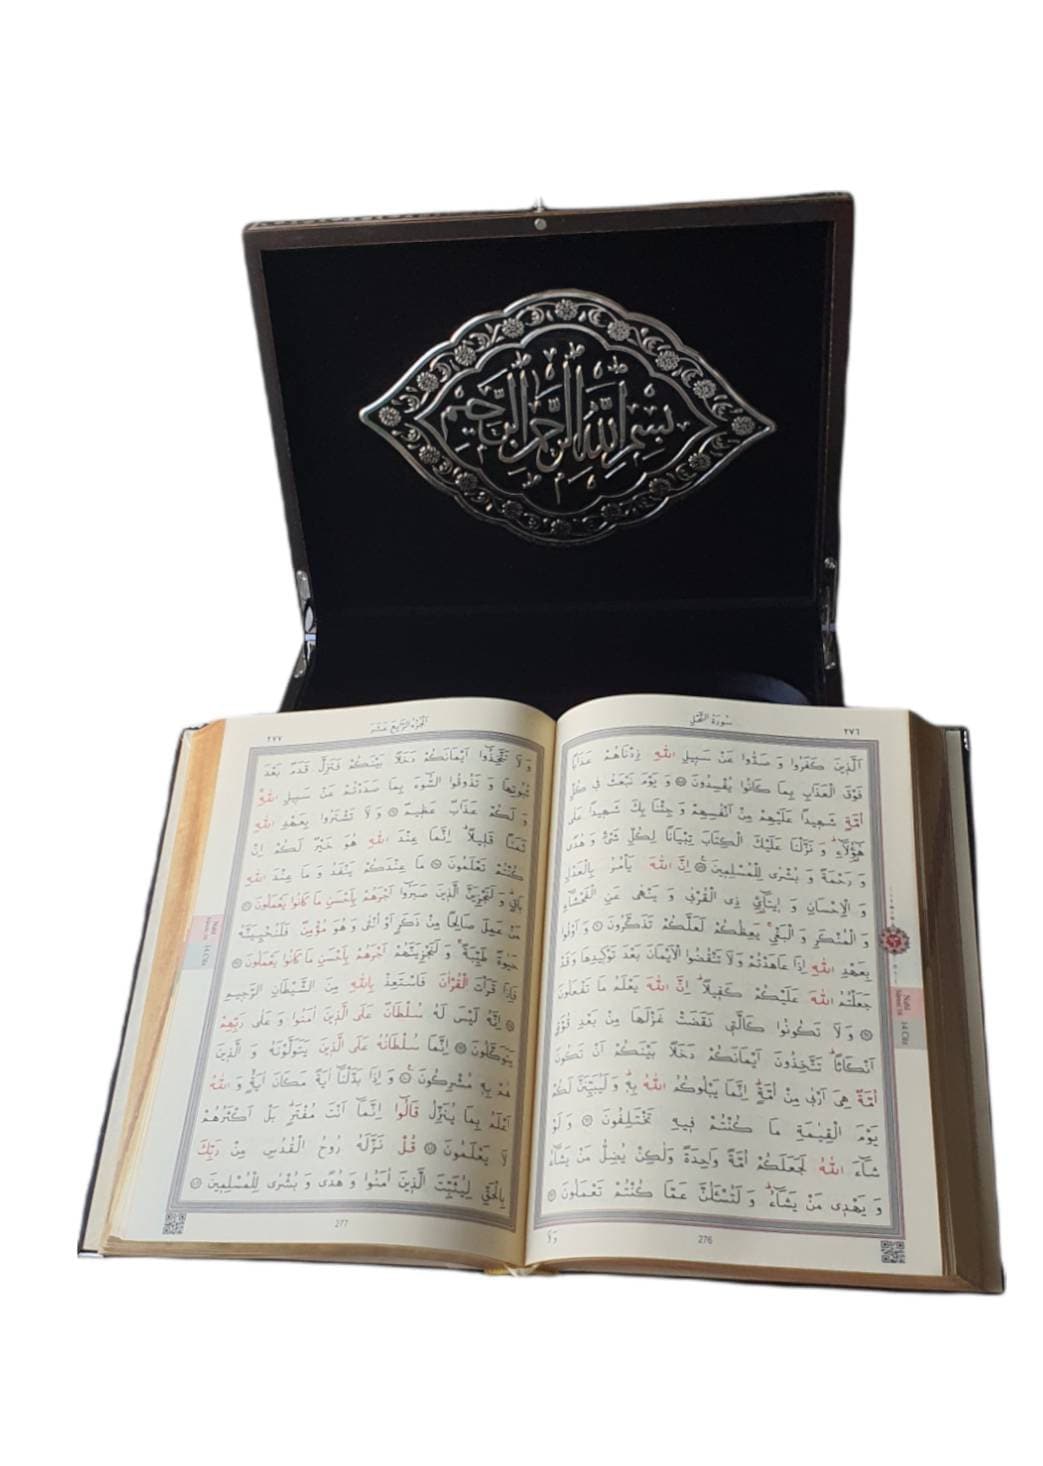 بِسْمِ اللّٰهِ الرَّحْمٰنِ الرَّحِيمِ
٢٧٦
سُورَةُ النَّحْلِ
اَلَّذِينَ كَفَرُوا وَ صَدُّوا عَنْ سَبِيلِ اللّٰهِ زِدْنَاهُمْ عَذَابًا
فَوْقَ الْعَذَابِ بِمَا كَانُوا يُفْسِدُونَ ۝ وَ يَوْمَ نَبْعَثُ فِي كُلِّ
اُمَّةٍ شَهِيدًا عَلَيْهِمْ مِنْ اَنْفُسِهِمْ وَ جِئْنَا بِكَ شَهِيدًا عَلٰى
هٰٓؤُلَاءِ وَ نَزَّلْنَا عَلَيْكَ الْكِتَابَ تِبْيَانًا لِكُلِّ شَيْءٍ وَ هُدًى
وَ رَحْمَةً وَ بُشْرٰى لِلْمُسْلِمِينَ ۝ اِنَّ اللّٰهَ يَاْمُرُ بِالْعَدْلِ
وَ الْاِحْسَانِ وَ اِيتَائِ ذِي الْقُرْبٰى وَ يَنْهٰى عَنِ الْفَحْشَاءِ
وَ الْمُنْكَرِ وَ الْبَغْيِ يَعِظُكُمْ لَعَلَّكُمْ تَذَكَّرُونَ ۝ وَ اَوْفُوا
بِعَهْدِ اللّٰهِ اِذَا عَاهَدْتُمْ وَ لَا تَنْقُضُوا الْاَيْمَانَ بَعْدَ تَوْكِيدِهَا وَ قَدْ
جَعَلْتُمُ اللّٰهَ عَلَيْكُمْ كَفِيلًا اِنَّ اللّٰهَ يَعْلَمُ مَا تَفْعَلُونَ
۝ وَ لَا تَكُونُوا كَالَّتِي نَقَضَتْ غَزْلَهَا مِنْ بَعْدِ قُوَّةٍ
اَنْكَاثًا تَتَّخِذُونَ اَيْمَانَكُمْ دَخَلًا بَيْنَكُمْ اَنْ تَكُونَ
اُمَّةٌ هِيَ اَرْبٰى مِنْ اُمَّةٍ اِنَّمَا يَبْلُوكُمُ اللّٰهُ بِهِ وَ لَيُبَيِّنَنَّ لَكُمْ
يَوْمَ الْقِيٰمَةِ مَا كُنْتُمْ فِيهِ تَخْتَلِفُونَ ۝ وَ لَوْ
شَاءَ اللّٰهُ لَجَعَلَكُمْ اُمَّةً وَاحِدَةً وَلٰكِنْ يُضِلُّ مَنْ يَشَاءُ
وَ يَهْدِي مَنْ يَشَاءُ وَ لَتُسْـَٔلُنَّ عَمَّا كُنْتُمْ تَعْمَلُونَ ۝
وَلَا
276
اَلْجُزْءُ الرَّابِعَ عَشَرَ
٢٧٧
وَ لَا تَتَّخِذُوا اَيْمَانَكُمْ دَخَلًا بَيْنَكُمْ فَتَزِلَّ قَدَمٌ بَعْدَ
ثُبُوتِهَا وَ تَذُوقُوا السُّوءَ بِمَا صَدَدْتُمْ عَنْ سَبِيلِ اللّٰهِ
وَ لَكُمْ عَذَابٌ عَظِيمٌ ۝ وَ لَا تَشْتَرُوا بِعَهْدِ اللّٰهِ
ثَمَنًا قَلِيلًا اِنَّمَا عِنْدَ اللّٰهِ هُوَ خَيْرٌ لَكُمْ اِنْ
كُنْتُمْ تَعْلَمُونَ ۝ مَا عِنْدَكُمْ يَنْفَدُ وَ مَا عِنْدَ اللّٰهِ
بَاقٍ وَ لَنَجْزِيَنَّ الَّذِينَ صَبَرُوا اَجْرَهُمْ بِاَحْسَنِ مَا كَانُوا يَعْمَلُونَ ۝
مَنْ عَمِلَ صَالِحًا مِنْ ذَكَرٍ اَوْ اُنْثٰى وَ هُوَ مُؤْمِنٌ فَلَنُحْيِيَنَّهُ
حَيٰوةً طَيِّبَةً وَ لَنَجْزِيَنَّهُمْ اَجْرَهُمْ بِاَحْسَنِ مَا كَانُوا يَعْمَلُونَ ۝
فَاِذَا قَرَاْتَ الْقُرْاٰنَ فَاسْتَعِذْ بِاللّٰهِ مِنَ الشَّيْطَانِ الرَّجِيمِ
۝ اِنَّهُ لَيْسَ لَهُ سُلْطَانٌ عَلَى الَّذِينَ اٰمَنُوا وَ عَلٰى رَبِّهِمْ
يَتَوَكَّلُونَ ۝ اِنَّمَا سُلْطَانُهُ عَلَى الَّذِينَ يَتَوَلَّوْنَهُ وَ الَّذِينَ
هُمْ بِهِ مُشْرِكُونَ ۝ وَ اِذَا بَدَّلْنَا اٰيَةً مَكَانَ اٰيَةٍ وَ اللّٰهُ
اَعْلَمُ بِمَا يُنَزِّلُ قَالُوا اِنَّمَا اَنْتَ مُفْتَرٍ بَلْ اَكْثَرُهُمْ
لَا يَعْلَمُونَ ۝ قُلْ نَزَّلَهُ رُوحُ الْقُدُسِ مِنْ رَبِّكَ
بِالْحَقِّ لِيُثَبِّتَ الَّذِينَ اٰمَنُوا وَ هُدًى وَ بُشْرٰى لِلْمُسْلِمِينَ ۝
277